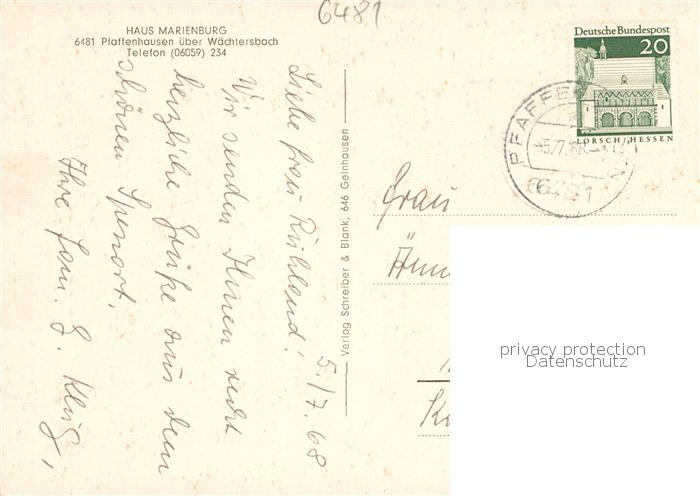 6481
HAUS MARIENBURG
6481 Pfaffenhausen über Wächtersbach
Telefon (06059) 234
Deutsche Bundespost
20
LORSCH/HESSEN
PFAFFE
6481
5./7.68
Liebe Frau Rühland!
Wir senden Ihnen recht
herzliche Grüße aus dem
schönen Spessart.
Ihre Fam. G. Klug,
Verlag Schreiber & Blank, 646 Gelnhausen
Frau
privacy protection
Datenschutz